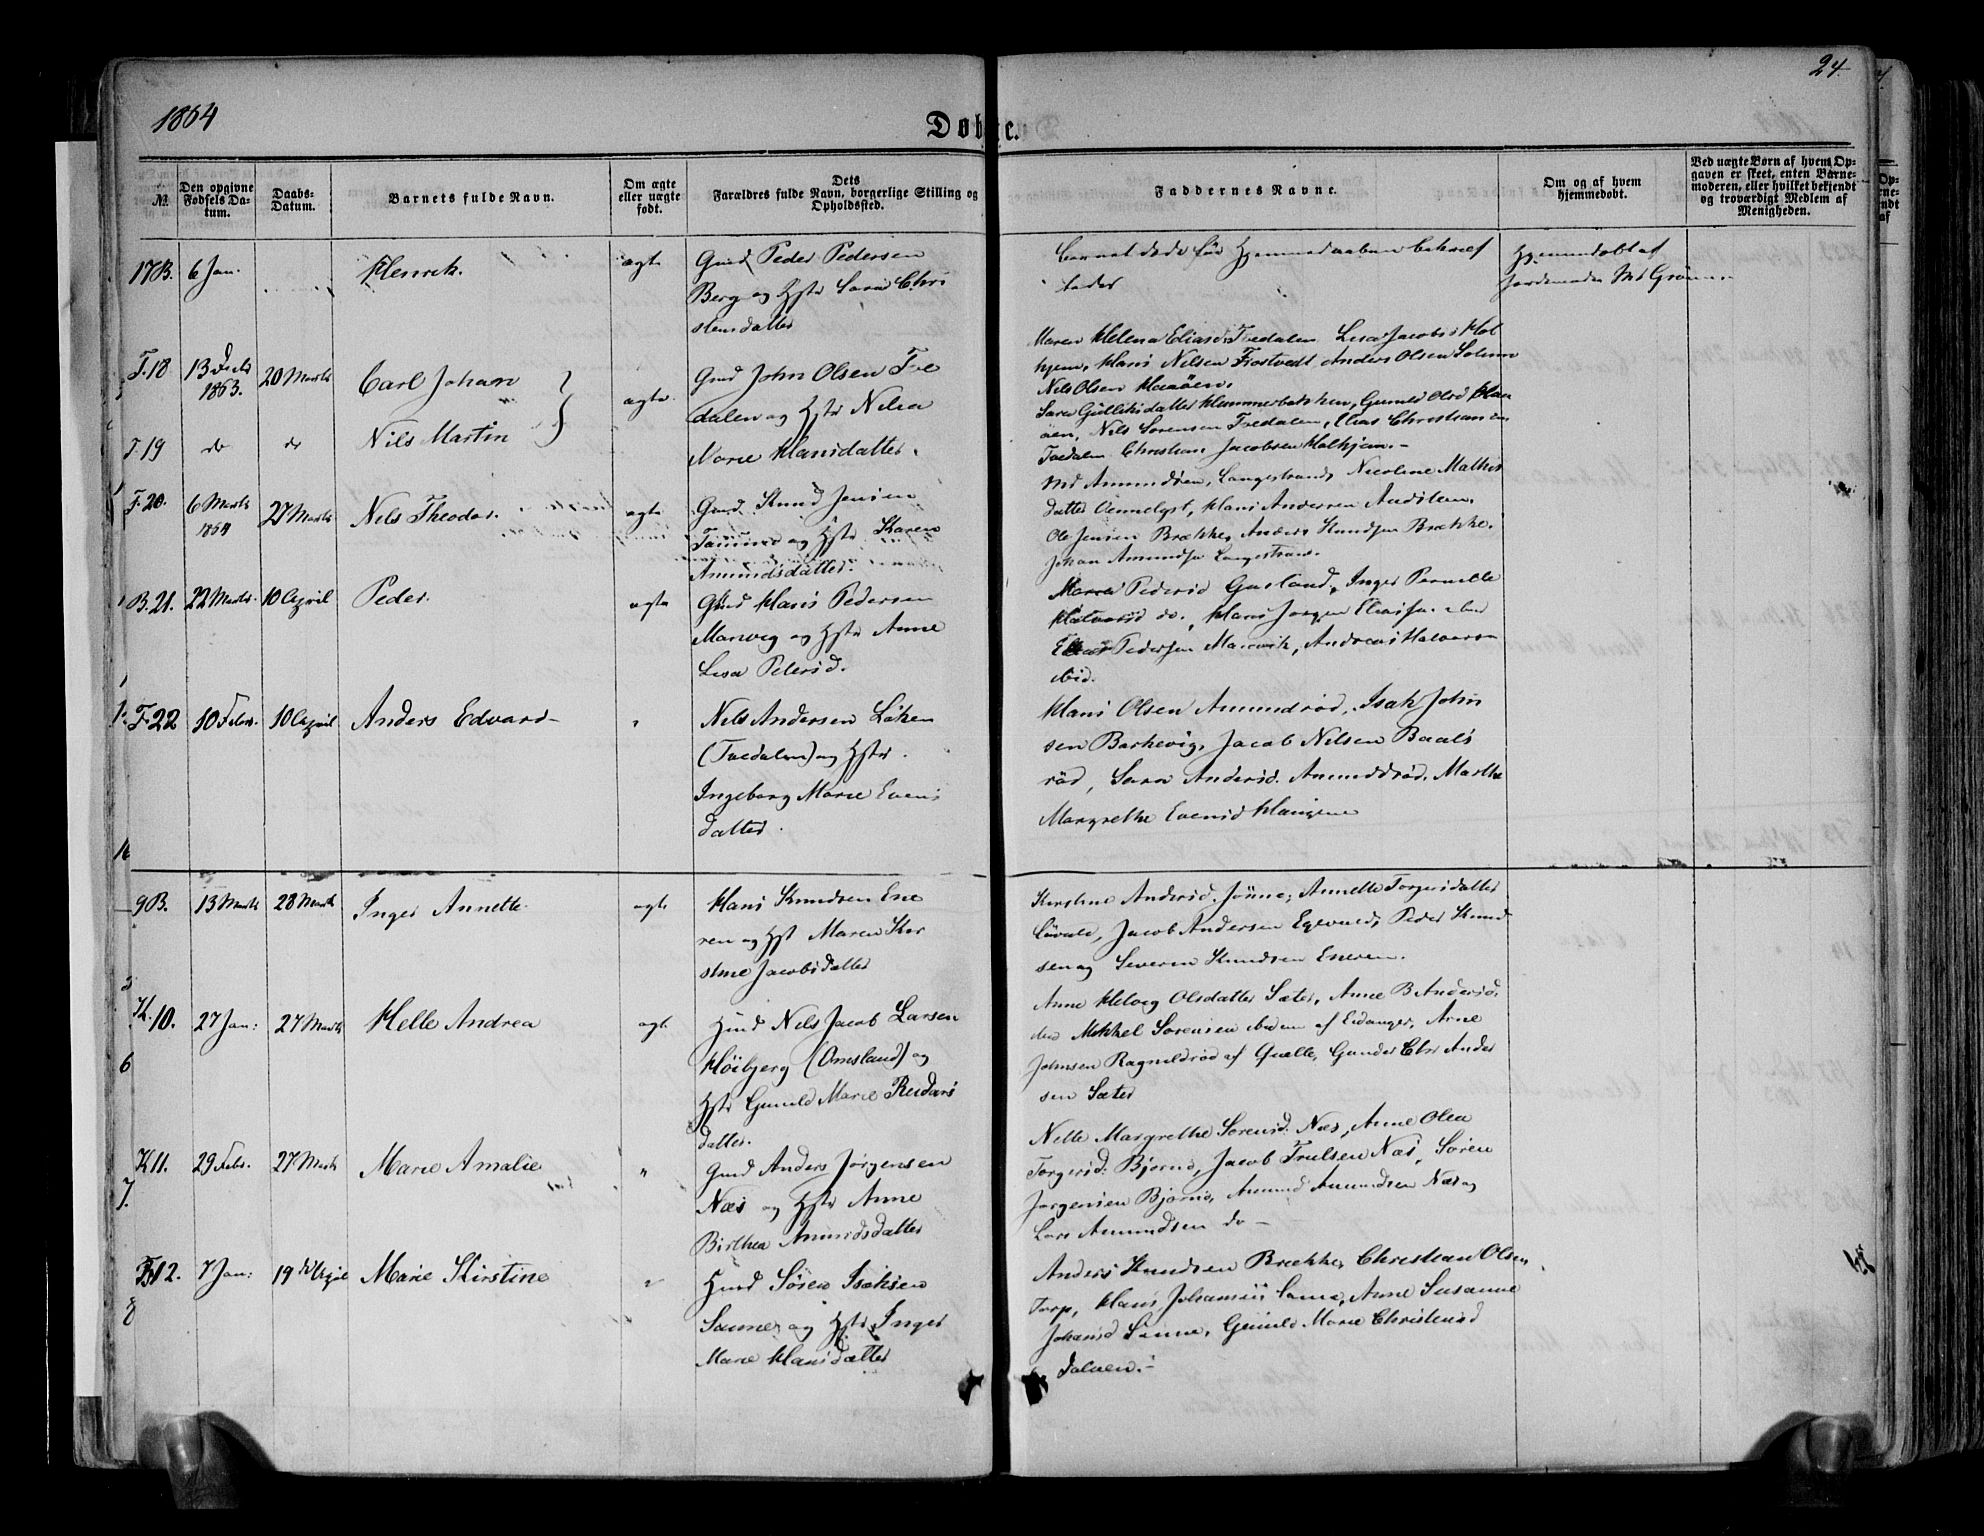 1864
24.
Døbte.
№
Den opgivne Fødsels Datum.
Daabs-Datum.
Barnets fulde Navn.
Om ægte eller uægte født.
Dets Farældres fulde Navn, borgerlige Stilling og Opholdssted.
Faddernes Navne.
Om og af hvem hjemmedøbt.
Ved uægte Børn af hvem Op-
gaven er skeet, enten Barne-
moderen, eller hvilket bekjendt
og troværdigt Medlem af
Menigheden.
17 B. 6 Jan. Henrik. ægte Gmd Peder Pedersen
Berg og Hstr Sara Chri
stensdatter
Barnet døde før Hjemmedaaben bekræf
tedes
Hjemmedøbt af
Jordemoder
F. 18 13 Decbr 1863. 20 Marts Carl Johan ægte Gmd John Olsen Tve
dalen og Hstr Nilea
F. 19 do do Nils Martin
Marie Hansdatter.
Maren Helena Eliasd. Tvedalen Lisa Jacobsd Hol
hjem, Hans Nilsen Anders Olsen
Nils Olsen
Sara Gulliksdatter
Nils Sørensen Tvedalen, Elias Christian
Tvedalen Christian Jacobsen Holhjem.-
F. 20. 6 Marts 1864 27 Marts Nils Theodor. ægte Gmd Knud Jensen
og Hstr Karen
Amundsdatter.
Amundsen, Langestrand, Nicoline Mathis
datter Hans Andersen
Ole Jensen Brække, Anders Knudsen Brække.
Johan Amundsen Langestrand.
B. 21. 22 Marts. 10 April Peder. ægte Gmd Hans Pedersen
Marveg og Hstr Anne
Lisa Petersd.
Maren Pedersd Gusland, Inger Pernille
Halvorsd do., Hans Jørgen
Pedersen Marevik, Andreas Halvorsen
ibid.
F. 22 10 Febr. 10 April Anders Edvard - Nils Andersen Løken
(Tvedalen) og Hstr.
Ingeborg Marie Evens
datter.
Hans Olsen Amundrød, Isak John
sen Barkevig, Jacob Nilsen Baals
rød, Sara Andersd. Amundrød, Marthe
Margrethe Evensd Haugene
9 B. 13 Marts 28 Marts Inger Annette. ægte Hans Knudsen Ene
ren og Hst Maren Kir
stine Jacobsdatter
Kirstine Andersd. Annette Torgersdatter
Jacob Andersen Peder Knud
sen og Severin Knudsen Eneren.
K. 10. 27 Jan: 27 Marts Helle Andrea ægte Hmd Nils Jacob Larsen
Høibjerg (Omsland) og
Hstr Gunild Marie Reidars
datter.
Anne Helvig Olsdatter Sæter, Anne B Andersd.
do Mikkel Sørensen ibidem af Eidanger, Arne
Johnsen Ragnildrød af Qvelle, Gunder Chr Ander
sen Sæter
K 11. 29 Febr. 27 Marts Marie Amalie " Gmd Anders Jørgensen
Næs og Hstr Anne
Birthea Amundsdatter
Nelle Margrethe Sørensd. Næs, Anne Olea
Torgersd. Bjørnø, Jacob Trulsen Næs, Søren
Jørgensen Bjørnø, Amund Amundsen Næs og
Lars Amundsen do -
B 12. 7 Jan: 19 de April Marie Kirstine " Hmd Søren Isaksen
Sanne og Hstr Inger
Marie Hansdatter
Anders Knudsen Brække, Christian Olsen
Torp, Hans Johannis Sanne, Anne Susanne
Johansd Sanne, Gunild Marie Christensd